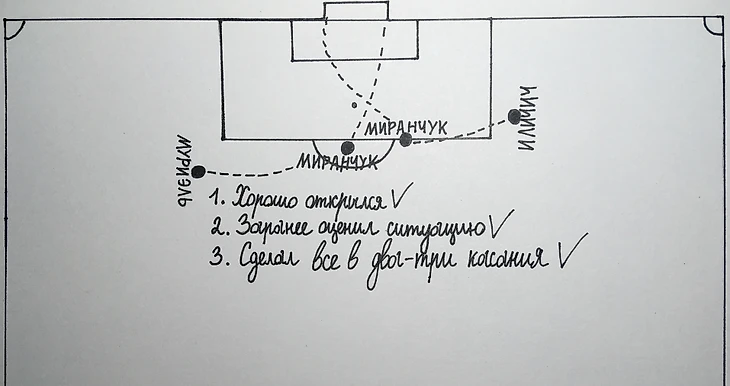 МИРАНЧУК
ИЛИЧИЧ
МИРАНЧУК
МУРИЭЛЬ
1. Хорошо открылся ✓
2. Заранее оценил ситуацию ✓
3. Сделал все в два-три касания ✓